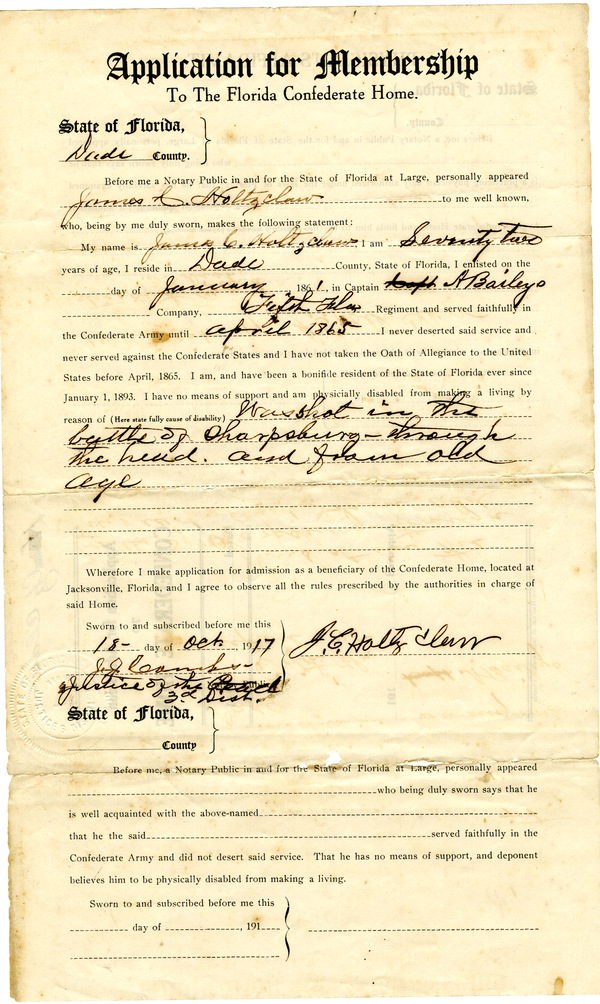 Application for Membership
To The Florida Confederate Home.
State of Florida,
Dade County.
Before me a Notary Public in and for the State of Florida at Large, personally appeared
James C Holtzclaw to me well known,
who, being by me duly sworn, makes the following statement:
My name is James C. Holtzclaw I am Seventy two
years of age, I reside in Dade County, State of Florida, I enlisted on the
day of January 1861, in Captain A Baileys
Company, Fifth Fla Regiment and served faithfully in
the Confederate Army until April 1865 I never deserted said service and
never served against the Confederate States and I have not taken the Oath of Allegiance to the United
States before April, 1865. I am, and have been a bonifide resident of the State of Florida ever since
January 1, 1893. I have no means of support and am physicially disabled from making a living by
reason of (Here state fully cause of disability) Was shot in the
battle of Sharpsburg-through
the head. and from old
age
Wherefore I make application for admission as a beneficiary of the Confederate Home, located at
Jacksonville, Florida, and I agree to observe all the rules prescribed by the authorities in charge of
said Home.
Sworn to and subscribed before me this
18- day of Oct 1917
J. C. Holtzclaw
J. J. Combs-
Justice of the Peace
3.d Dist.
State of Florida,
County
Before me, a Notary Public in and for the State of Florida at Large, personally appeared
who being duly sworn says that he
is well acquainted with the above-named
that he the said served faithfully in the
Confederate Army and did not desert said service. That he has no means of support, and deponent
believes him to be physically disabled from making a living.
Sworn to and subscribed before me this
day of , 191